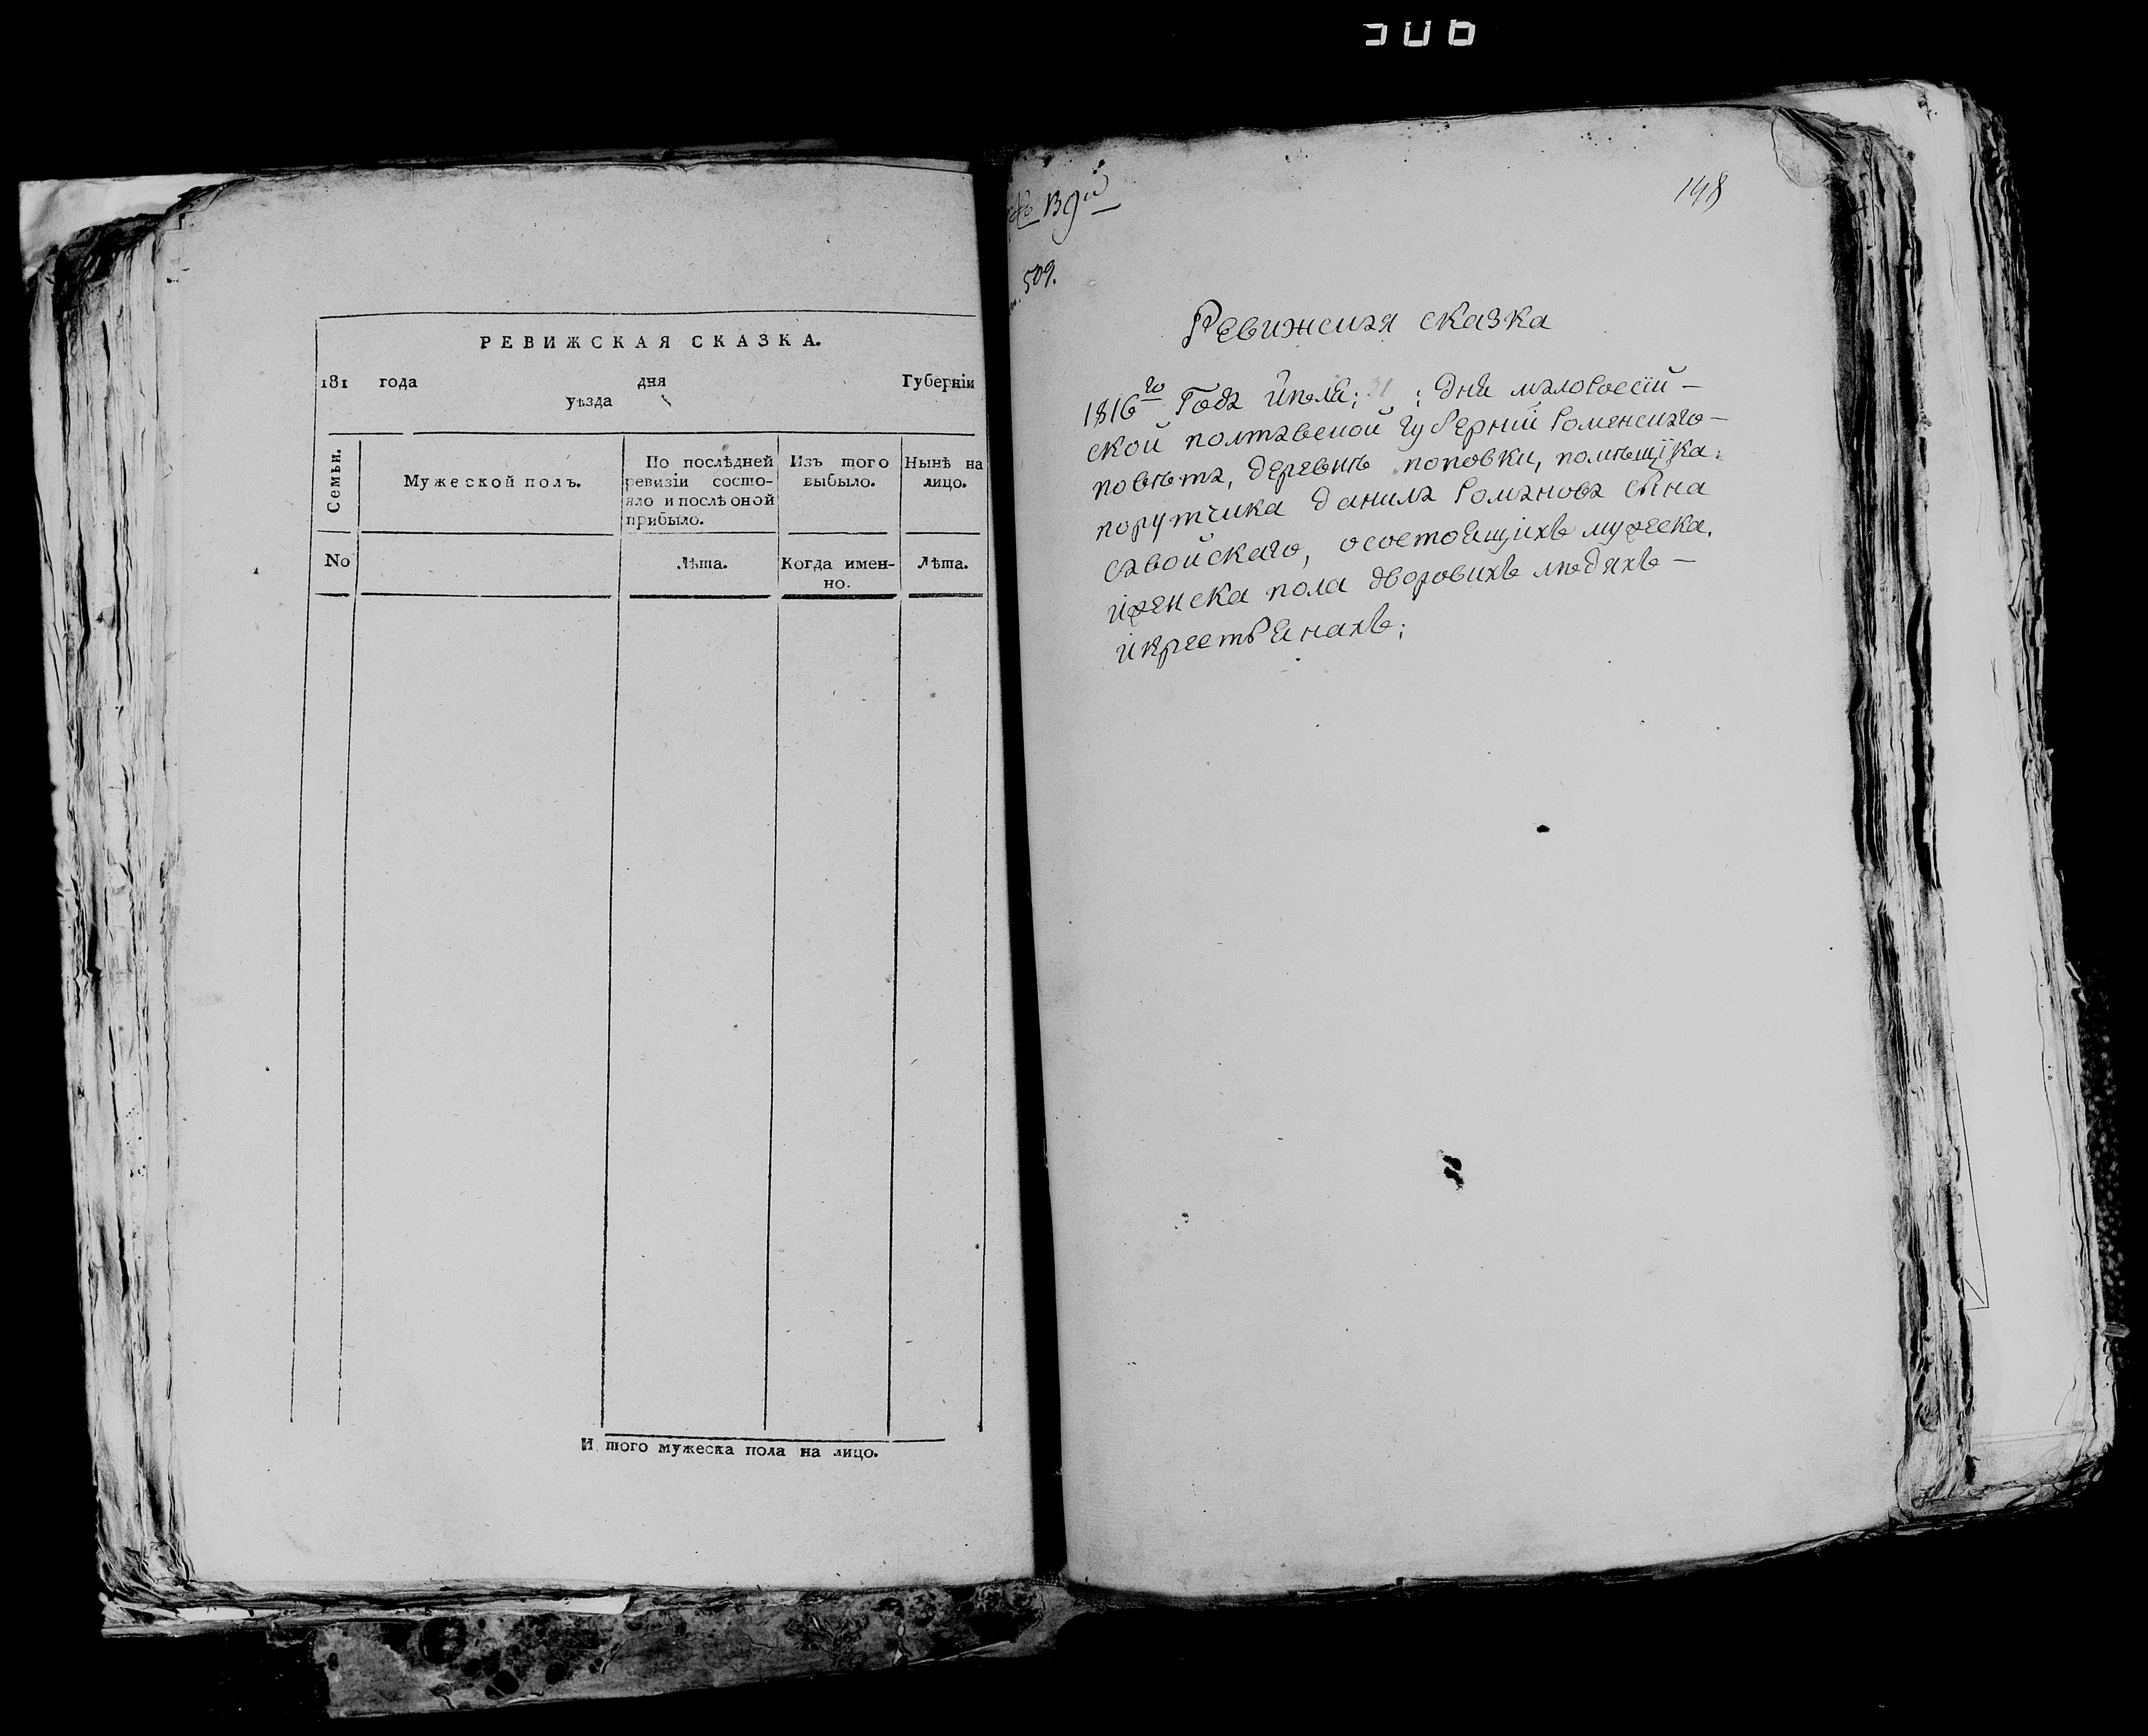 506
РЕВИЖСКАЯ СКАЗКА.
181 года дня Губерніи
уѣзда
Семьи.
Мужеской полъ.
По послѣдней ревизіи состо-
яло и послѣ оной
прибыло.
Изъ того
выбыло.
Нынѣ на
лицо.
No
Лѣта.
Когда имен-
но.
Лѣта.
И того мужеска пола на лицо.
139й
509.
148
Ревижская сказка
1816го Года июля; 31 ; дня малоросiй-
ской полтавской губернiи роменскаго-
повѣта, деревнѣ поповки, помѣщiка
порутчика данила романова сына
савойскаго, осостоящихъ мужеска.
iженска пола дворовихъ людяхъ-
iкрестьянахъ;